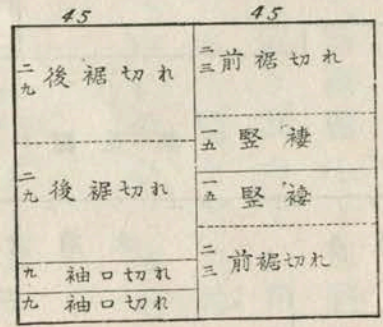 45
45
二九 後裾切れ
二九 後裾切れ
九 袖口切れ
九 袖口切れ
二三 前裾切れ
一五 竪褄
一五 竪褄
二三 前裾切れ